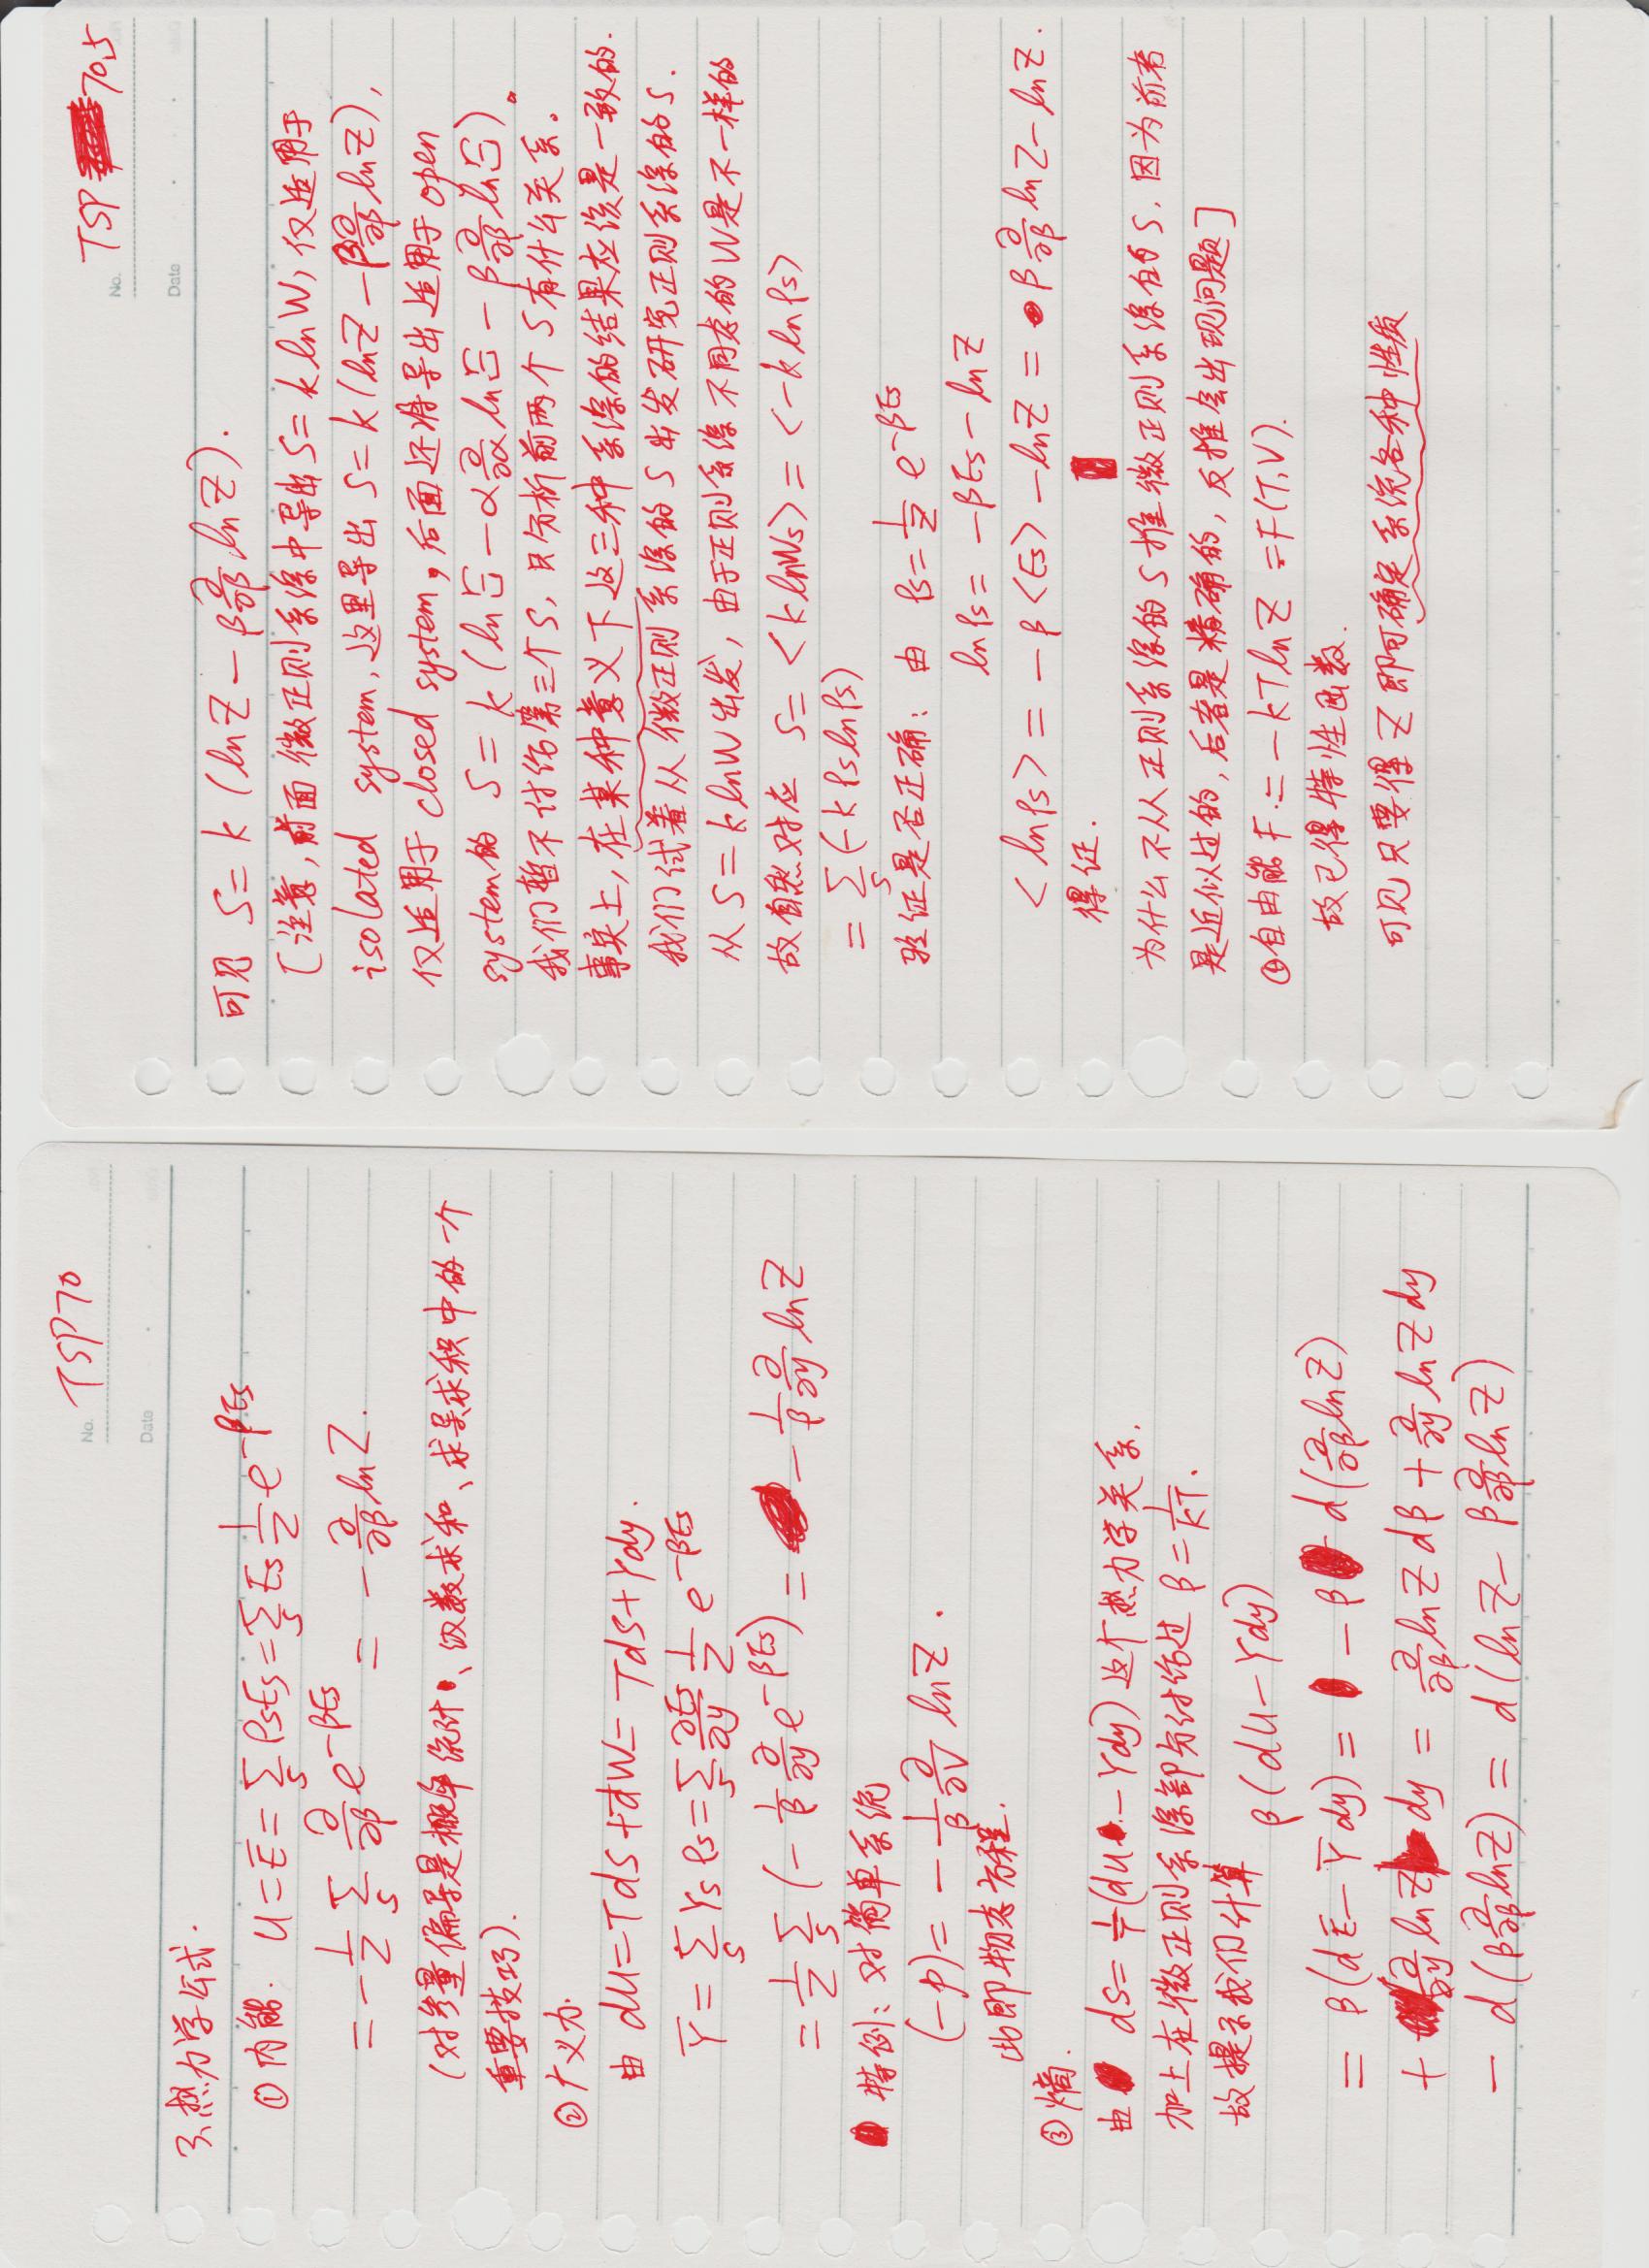 No. TSP70
Date
3、热力学公式.
① 内能. U = Ē = ∑_s ρ_s E_s = ∑_s E_s 1/Z e^{-βE_s}
= -1/Z ∑_s ∂/∂β e^{-βE_s} = -∂/∂β ln Z.
(对参量偏导是概率统计、级数求和、求导求积中的一个
重要技巧).
② 广义力.
由 dU = TdS + đW = TdS + Ydy.
Ȳ = ∑_s Y_s ρ_s = ∑_s ∂E_s/∂y 1/Z e^{-βE_s}
= 1/Z ∑_s (-1/β ∂/∂y e^{-βE_s}) = -1/β ∂/∂y ln Z
特例: 对简单系统
(-p) = -1/β ∂/∂V ln Z.
此即物态方程.
③ 熵.
由 dS = 1/T (dU - Ydy) 这个热力学关系,
加上在微正则系综部分讨论过 β = 1/kT.
故提示我们计算
β(dU - Ydy)
= β(dĒ - Ȳdy) = -β d(∂/∂β ln Z)
+ ∂/∂y ln Z dy = ∂/∂β ln Z dβ + ∂/∂y ln Z dy
- d(β ∂/∂β ln Z) = d(ln Z - β ∂/∂β ln Z)
No. TSP 70.5
Date
可见 S = k (ln Z - β ∂/∂β ln Z).
[注意, 前面微正则系综中导出 S = k ln W, 仅适用于
isolated system, 这里导出 S = k (ln Z - β ∂/∂β ln Z),
仅适用于 closed system, 后面还将导出适用于 open
system的 S = k (ln Ξ - α ∂/∂α ln Ξ - β ∂/∂β ln Ξ)。
我们暂不讨论第三个S, 只分析前两个S有什么关系。
事实上, 在某种意义下这三种系综的结果应该是一致的.
我们试着从微正则系综的S出发研究正则系综的S.
从 S = k ln W 出发, 由于正则系综不同态的W是不一样的
故自然对应 S = <k ln W_s> = <-k ln ρ_s>
= ∑_s (-k ρ_s ln ρ_s)
验证是否正确: 由 ρ_s = 1/Z e^{-βE_s}
ln ρ_s = -βE_s - ln Z
<ln ρ_s> = -β<E_s> - ln Z = β ∂/∂β ln Z - ln Z.
得证.
为什么不从正则系综的S推微正则系综的S, 因为前者
是近似过的, 后者是精确的, 反推会出现问题]
④ 自由能 F = -kT ln Z = F(T,V).
故已得特性函数.
可见只要得Z即可确定系统各种性质